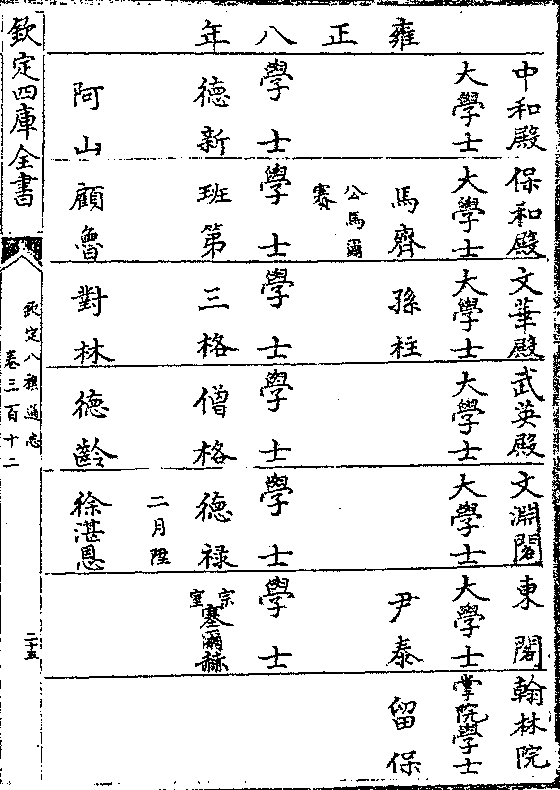 雍正八年
中和殿 保和殿 文華殿 武英殿 文淵閣 東閣 翰林院
大學士 大學士 大學士 大學士 大學士 大學士 掌院學士
馬齊 孫柱 尹泰 留保
公馬爾
賽
學士 學士 學士 學士 學士 學士
德新 班第 三格 僧格 德祿 宗室塞爾赫
二月陞
阿山 顧魯 對林 德齡 徐湛恩
欽定四庫全書
欽定八旗通志
卷三百十二
二十五